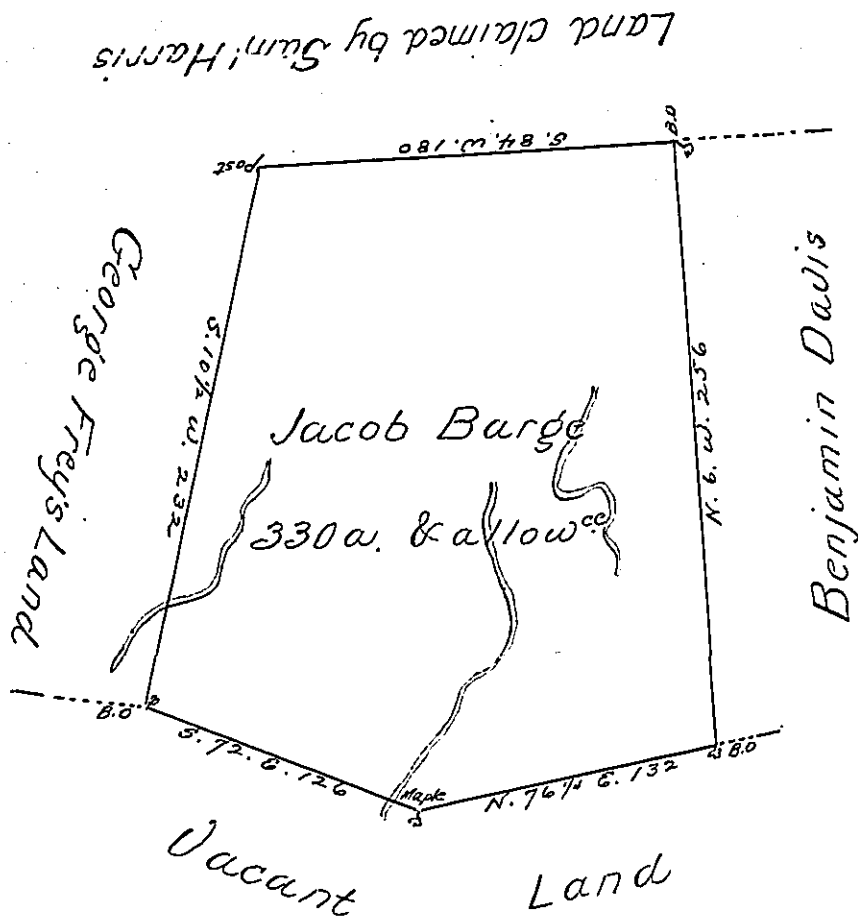 Land claimed by Sam! Harris
S. 84. W. 180
B.O
Post
George Frey's Land
S. 10½ W. 232
Jacob Barge
330 a. & allowce
N. 6. W. 256
Benjamin Davis
B.O
S. 72. E. 126
Maple
N. 76¼ E. 132
B.O
Vacant Land